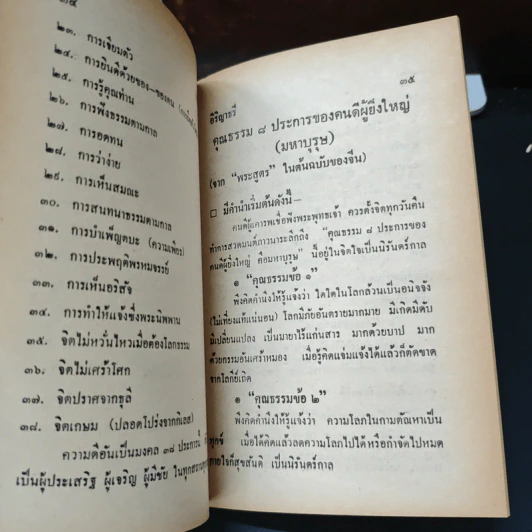 ๓๔
๒๓. การเจียมตัว
๒๔. การยินดีด้วยของ-ของตน
๒๕. การรู้คุณท่าน
๒๖. การฟังธรรมตามกาล
๒๗. การอดทน
๒๘. การว่าง่าย
๒๙. การเห็นสมณะ
๓๐. การสนทนาธรรมตามกาล
๓๑. การบำเพ็ญตบะ (ความเพียร)
๓๒. การประพฤติพรหมจรรย์
๓๓. การเห็นอริสัจ
๓๔. การทำให้แจ้งซึ่งพระนิพพาน
๓๕. จิตไม่หวั่นไหวเมื่อต้องโลกธรรม
๓๖. จิตไม่เศร้าโศก
๓๗. จิตปราศจากธุลี
๓๘. จิตเกษม (ปลอดโปร่งจากกิเลส)
ความดีอันเป็นมงคล ๓๘ ประการนี้
เป็นผู้ประเสริฐ ผู้เจริญ ผู้มีชัย ในทุกสถาน
๓๕
อิริญาทวี
คุณธรรม ๘ ประการของคนดีผู้ยิ่งใหญ่
(มหาบุรุษ)
(จาก “พระสูตร” ในต้นฉบับของจีน)
□ มีคำนำเริ่มต้นดังนี้–
คนดีผู้เคารพเชื่อฟังพระพุทธเจ้า ควรตั้งจิตทุกวันคืน
ทำการสวดมนต์ภาวนาระลึกถึง “คุณธรรม ๘ ประการของ
คนดีผู้ยิ่งใหญ่ คือมหาบุรุษ” นี้อยู่ในจิตใจเป็นนิรันดร์กาล
๑ “คุณธรรมข้อ ๑”
พึงคิดคำนึงให้รู้แจ้งว่า ใดใดในโลกล้วนเป็นอนิจจัง
(ไม่เที่ยงแท้แน่นอน) โลกมีภัยอันตรายมากมาย มีเกิดมีดับ
มีเปลี่ยนแปลง เป็นมายาไร้แก่นสาร มากด้วยบาป มาก
ด้วยกรรมอันเศร้าหมอง เมื่อรู้คิดแจ่มแจ้งได้แล้วก็ตัดขาด
จากโลกีย์เถิด
๑ “คุณธรรมข้อ ๒”
พึงคิดคำนึงให้รู้แจ้งว่า ความโลภในกามตัณหาเป็น
ทุกข์ เมื่อได้คิดแล้วลดความโลภไปได้หรือกำจัดไปหมด
กายใจก็สุขสันติ เป็นนิรันดร์กาล